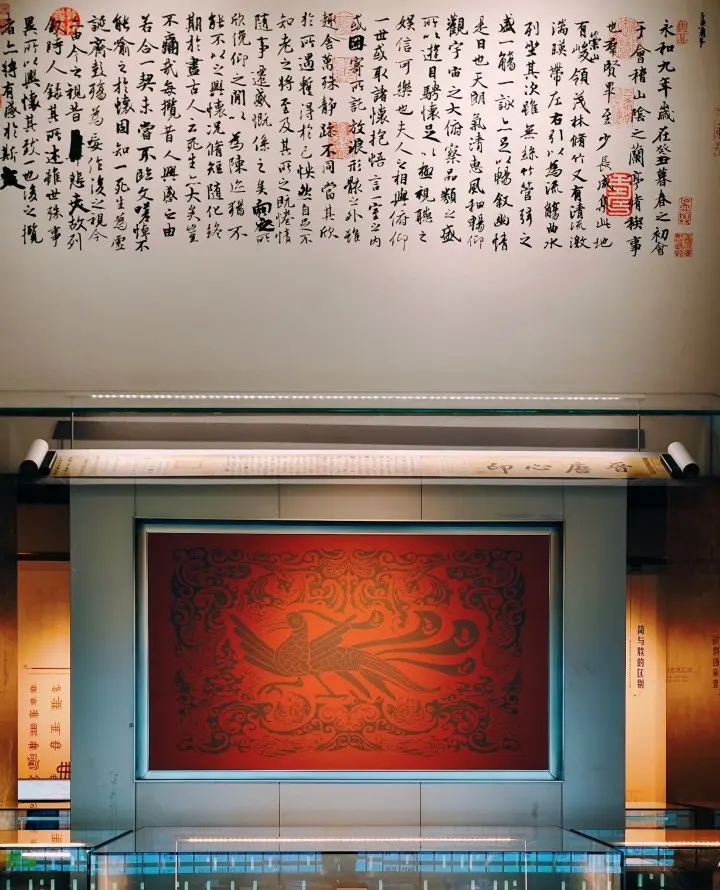 永和九年歲在癸丑暮春之初會
于會稽山陰之蘭亭脩稧事
也羣賢畢至少長咸集此地
有崇山峻領茂林脩竹又有清流激
湍暎帶左右引以為流觴曲水
列坐其次雖無絲竹管弦之
盛一觴一詠亦足以暢叙幽情
是日也天朗氣清惠風和暢仰
觀宇宙之大俯察品類之盛
所以遊目騁懷足以極視聽之
娛信可樂也夫人之相與俯仰
一世或取諸懷抱悟言一室之內
或因寄所託放浪形骸之外雖
趣舍萬殊靜躁不同當其欣
於所遇蹔得於己怏然自足不
知老之將至及其所之既惓情
隨事遷感慨係之矣向之所
欣俛仰之間以為陳迹猶不
能不以之興懷況脩短隨化終
期於盡古人云死生亦大矣豈
不痛哉每攬昔人興感之由
若合一契未嘗不臨文嗟悼不
能喻之於懷固知一死生為虛
誕齊彭殤為妄作後之視今
亦由今之視昔悲夫故列
敘時人錄其所述雖世殊事
異所以興懷其致一也後之攬
者亦將有感於斯文
晉唐心印
简与牍的区别